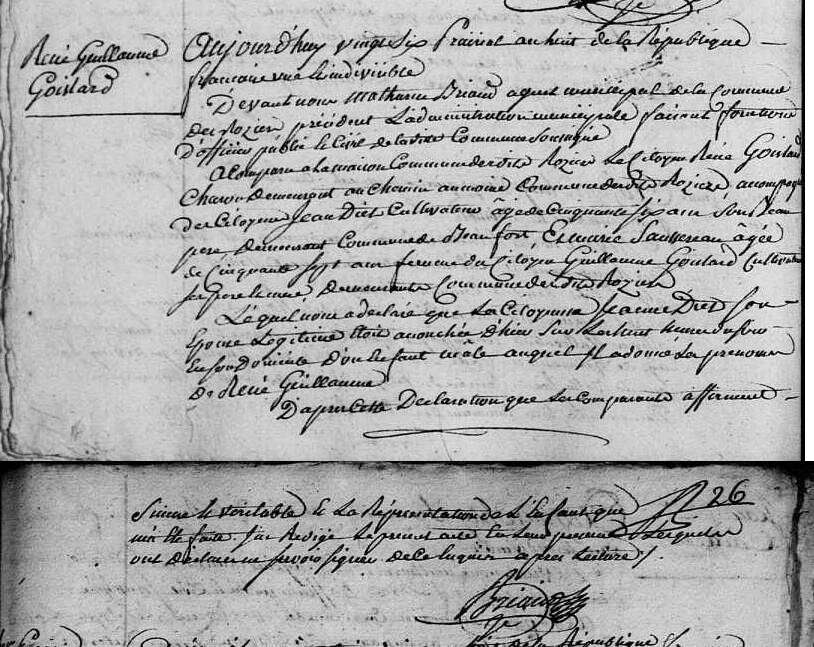 René Guillaume
Goislard
Aujourd'huy vingt six Prairial an huit de la République
francaise une et indivisible
Devant nous Mathurin Briand agent municipal de la Commune
des Rozier président L'administration municipale faisant fonctions
D'officier public et Civil de la dite Commune
A Comparu a la maison Commune des dits Rozier Le Citoyen René Goislard
Charon demeurant au chemin Commune des dits Rozier, accompagné
des Citoyens Jean Diet Cultivateur âgé de cinquante six ans Son Beau
pere demeurant Commune de Beaufort Et marie Saussereau âgée
de Cinquante sept ans femme du Citoyen Guillaume Goislard Cultivateur
ses pere et mere demeurants Commune des dits Rozier
Lequel nous a déclaré que La Citoyenne Jeanne Diet Son
Epouse Légitime étoit accouchée d'hier Sur Les huit heures du soir
En son Domicile D'un Enfant mâle auquel Il a donné Les prenoms
de René Guillaume
D'après Cette Declaration que Les Comparants affirment
26
Sincere et veritable et La Représentation de L'Enfant que
m'a été faite J'ai Redigé Le présent acte En Leur presence Lesquels
ont déclaré ne savoir signer de ce Enquis après Lecture /.
Briand
de la République